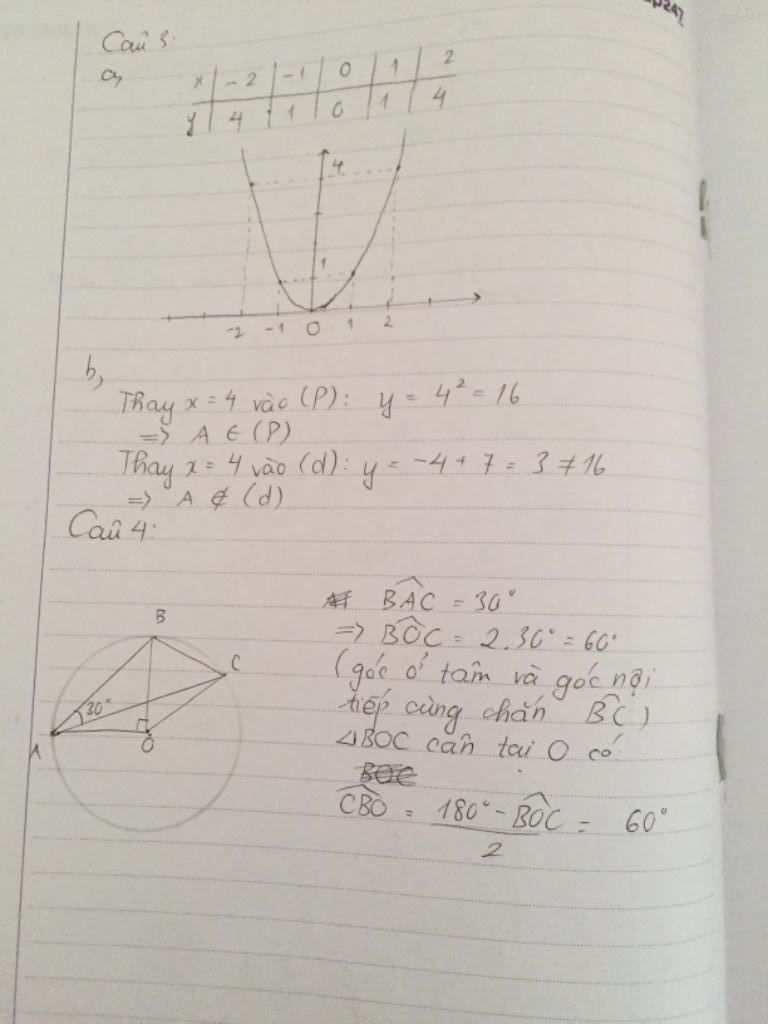 Câu 3:
a,
x | -2 | -1 | 0 | 1 | 2
y | 4 | 1 | 0 | 1 | 4
4
1
-2 -1 0 1 2
b,
Thay x = 4 vào (P): y = 4² = 16
=> A ∈ (P)
Thay x = 4 vào (d): y = -4 + 7 = 3 ≠ 16
=> A ∉ (d)
Câu 4:
B
C
30°
A
O
BAC = 30°
=> BOC = 2.30° = 60°
(góc ở tâm và góc nội
tiếp cùng chắn BC)
△BOC cân tại O có:
BOC
CBO = (180° - BOC)/2 = 60°